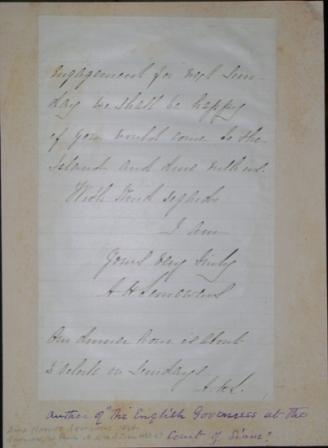 engagement for next Sun-
day we shall be happy
if you would come to the
Island and dine with us.
With kind regards
I am
Yours very truly
A H Leonowens
Our dinner hour is about
o'clock on Sundays
A. H. L.
author of "The English Governess at the
Court of Siam"